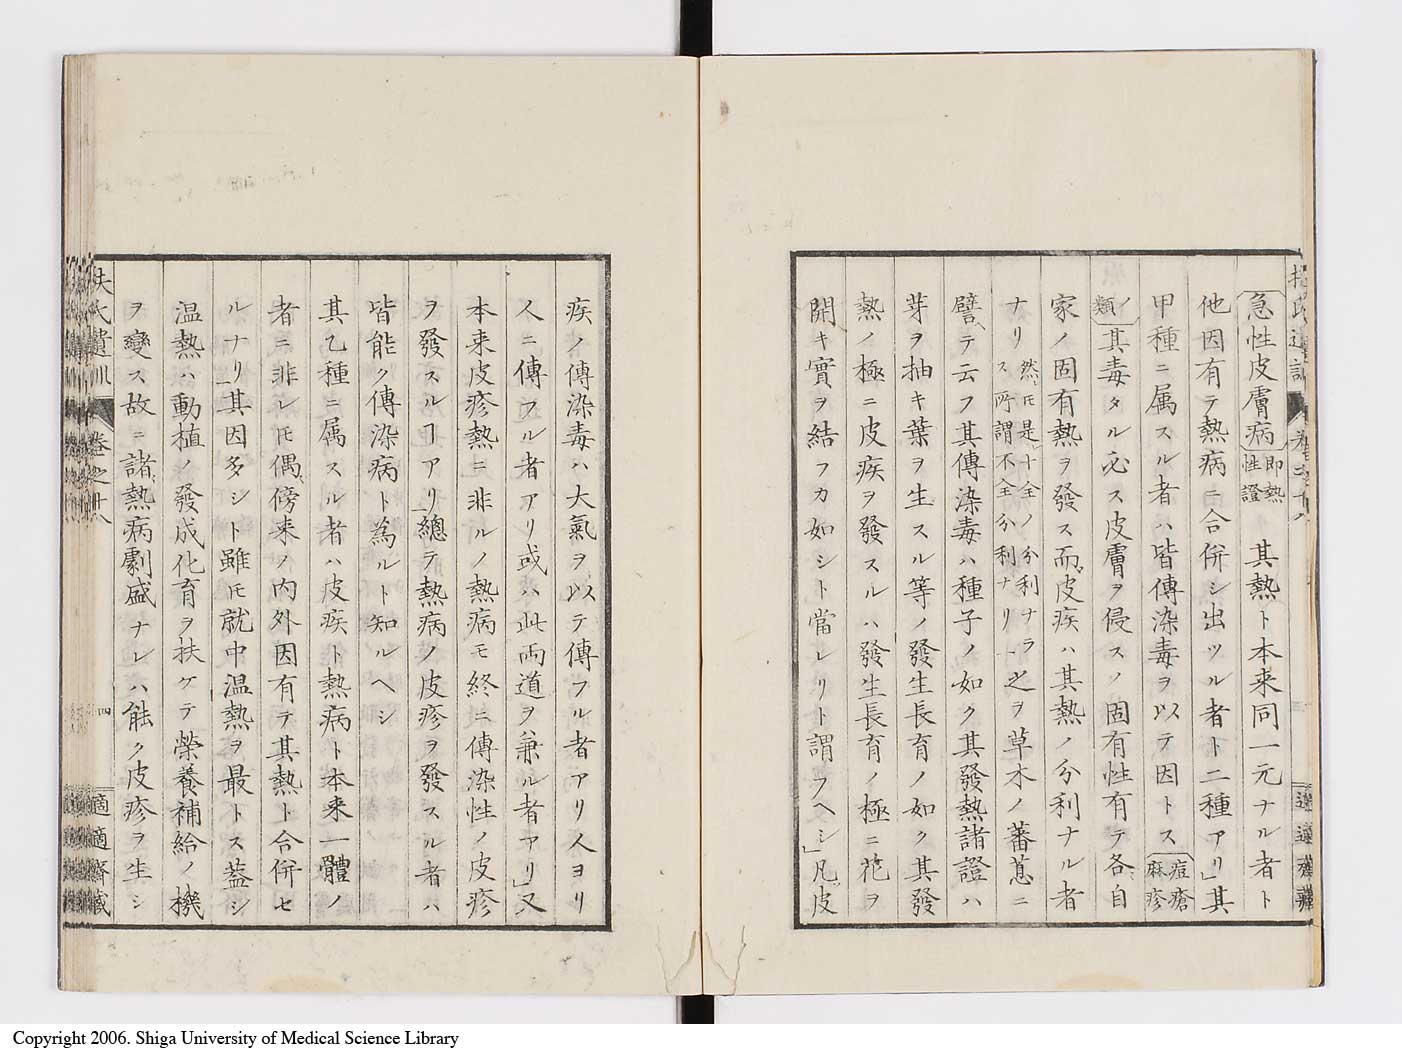 急性皮膚病
即熱
性證
其熱ト本来同一元ナル者ト
他因有テ熱病ニ合併シ出ツル者ト二種アリ」其
甲種ニ属スル者ハ皆傳染毒ヲ以テ因トス
痘瘡
麻疹
ノ
類
其毒タル必ス皮膚ヲ侵スノ固有性有テ各自
家ノ固有熱ヲ發ス而皮疾ハ其熱ノ分利ナル者
ナリ
然𪜈是十全ノ分利ナラ
ス所謂不全分利ナリ
之ヲ草木ノ蕃息ニ
譬テ云フ其傳染毒ハ種子ノ如ク其發熱諸證ハ
芽ヲ抽キ葉ヲ生スル等ノ發生長育ノ如ク其發
熱ノ極ニ皮疾ヲ發スルハ發生長育ノ極ニ花ヲ
開キ實ヲ結フカ如シト當レリト謂フヘシ」凡皮
疾ノ傳染毒ハ大氣ヲ以テ傳フル者アリ人ヨリ
人ニ傳フル者アリ或ハ此両道ヲ兼ル者アリ」又
本来皮疹熱ニ非ルノ熱病モ終ニ傳染性ノ皮疹
ヲ發スルヿアリ」總テ熱病ノ皮疹ヲ發スル者ハ
皆能ク傳染病ト為ルト知ルヘシ
其乙種ニ属スル者ハ皮疾ト熱病ト本来一體ノ
者ニ非レ𪜈偶傍来ノ内外因有テ其熱ト合併セ
ルナリ」其因多シト雖𪜈就中温熱ヲ最トス蓋シ
温熱ハ動植ノ發成化育ヲ扶ケテ榮養補給ノ機
ヲ變ス故ニ諸熱病劇盛ナレハ能ク皮疹ヲ生シ
扶氏遺訓
卷之廿八
四
適適齋藏
Copyright 2006. Shiga University of Medical Science Library